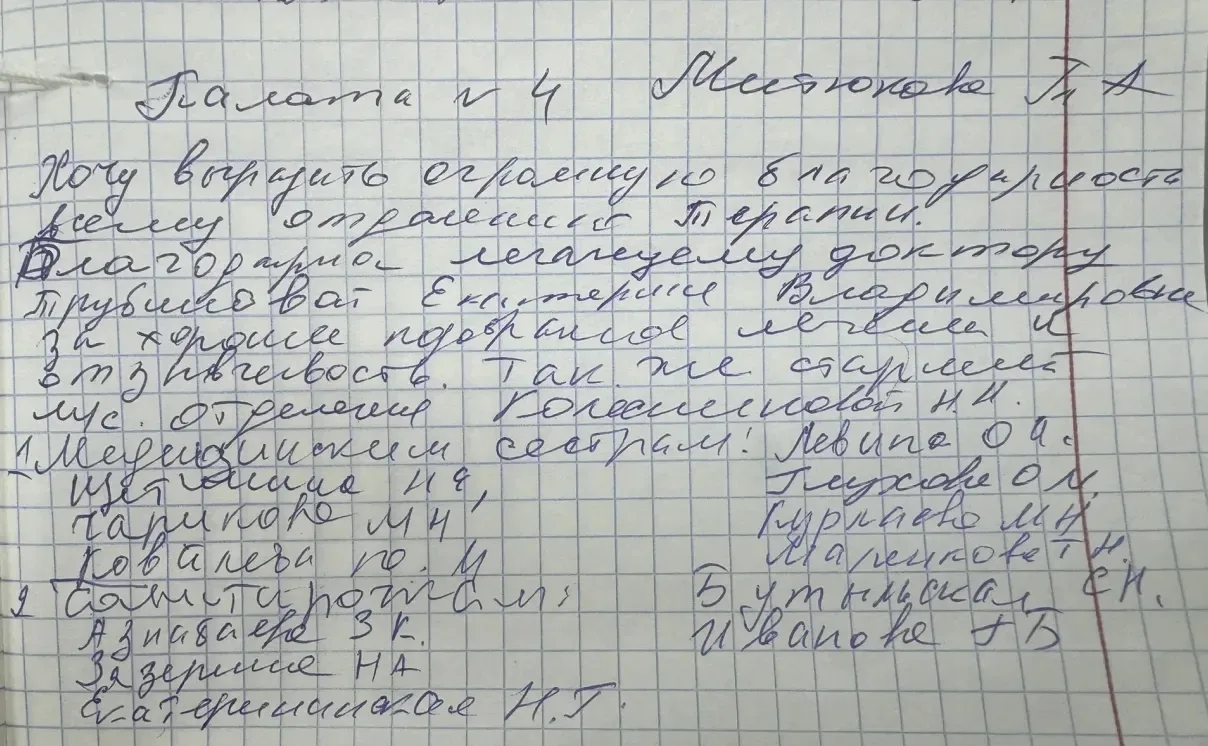 Палата № 4 Митюкова Г. А
Хочу выразить огромную благодарность
всему отделению Терапии.
Благодарна лечащему доктору
Екатерине Владимировне
За хорошее подобранное лечение и
отзывчивость. Так же старшей
м/с. отделения Колесниковой Н.Н.
1. Медицинским сестрам: Левина О И.
Щетинина Н Я, Глухова О М.
Чарикова М Н Гурлаева М Н
Ковалева Ю. И Маликова Т Н.
2 Санитарочкам: Бутыльская С Н.
Азнабаева З К. Иванова Г Б
Зязерина Н А
Екатерининская Н. Г.